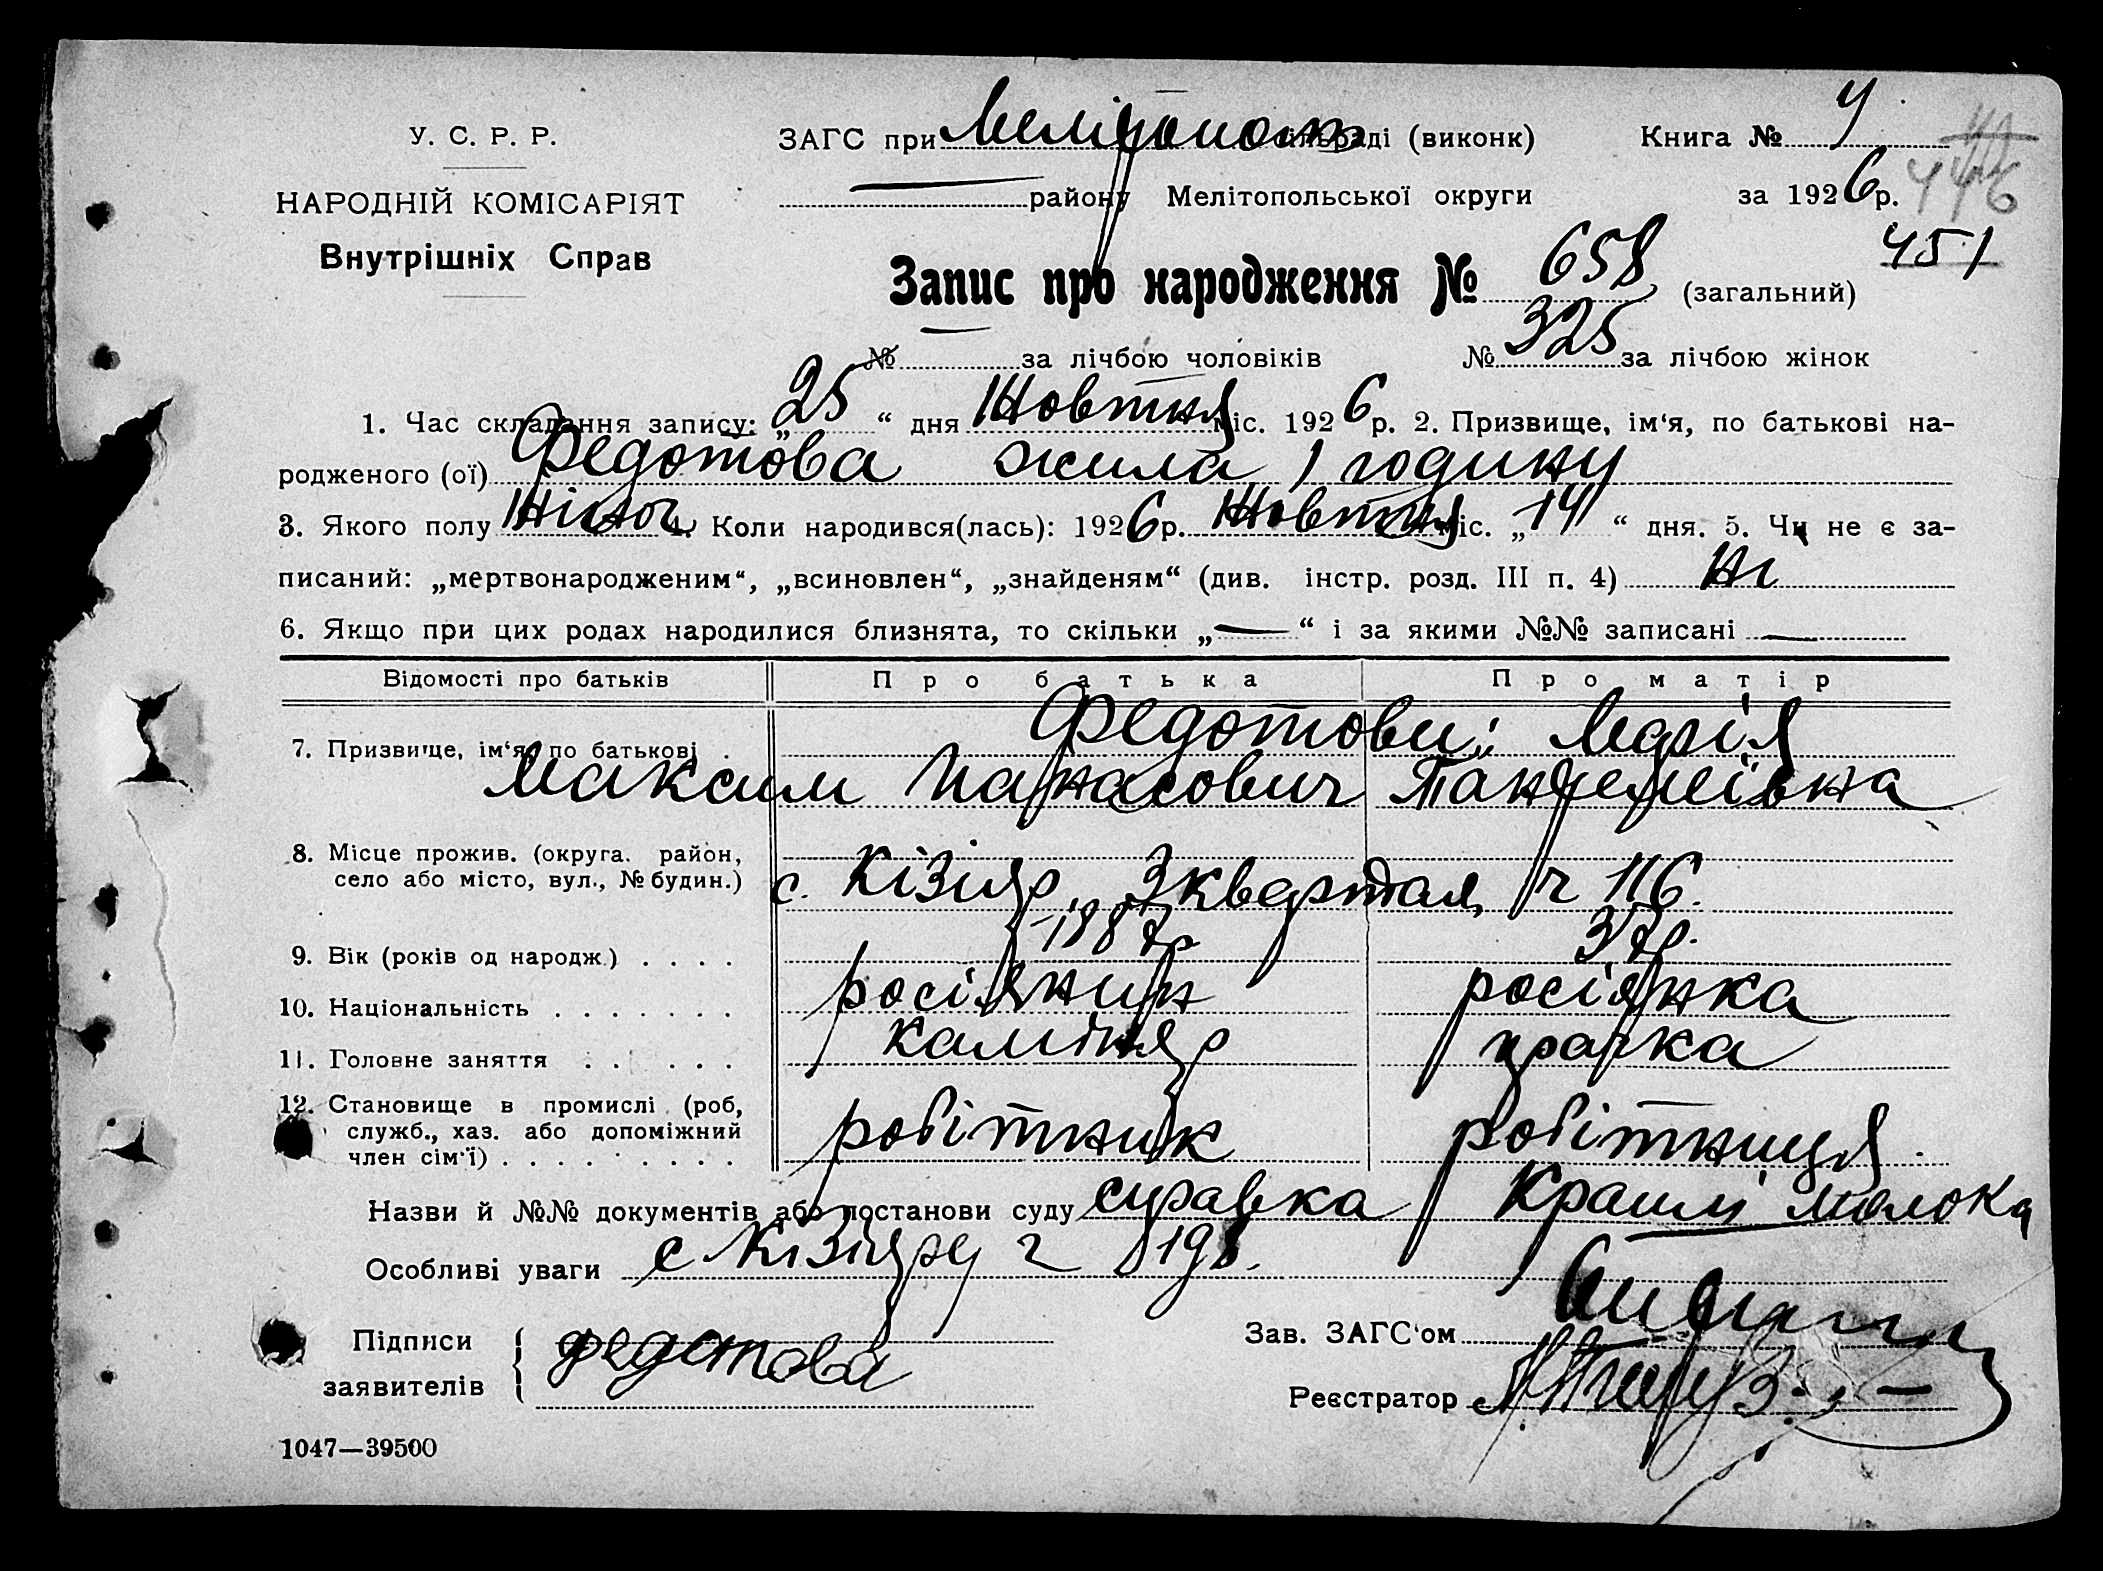 У. С. Р. Р.
НАРОДНІЙ КОМІСАРІЯТ
Внутрішніх Справ
ЗАГС при Мелітополь сільраді (виконк) Книга № 4
району Мелітопольської округи за 1926 р. 446
451
Запис про народження № 658 (загальний)
№ за лічбою чоловіків № 325 за лічбою жінок
1. Час складання запису: „25“ дня Жовтня міс. 1926 р. 2. Призвище, ім‘я, по батькові на-
родженого (ої) Федотова жила 1 годину
3. Якого полу жіноч 4. Коли народився(лась): 1926 р. Жовтня міс. „14“ дня. 5. Чи не є за-
писаний: „мертвонародженим“, „всиновлен“, „знайденям“ (див. інстр. розд. III п. 4) Ні
6. Якщо при цих родах народилися близнята, то скільки „—“ і за якими №№ записані —
Відомості про батьків Про батька Про матір
7. Призвище, ім‘я, по батькові Федотови: Марія
Максим Панасович Пантелеївна
8. Місце прожив. (округа. район,
село або місто, вул., № будин.) с. Кізіяр, 3 квартал, ч 116.
9. Вік (років од народж.) 1887 р 37 р.
10. Національність росіянин росіянка
11. Головне заняття каміняр прачка
12. Становище в промислі (роб,
служб., хаз. або допоміжний
член сім‘ї) робітник робітниця
Назви й №№ документів або постанови суду справка Краплі молока
Особливі уваги с Кізіяру
Підписи
заявителів Федотова
Зав. ЗАГС‘ом
Реєстратор
1047—39500